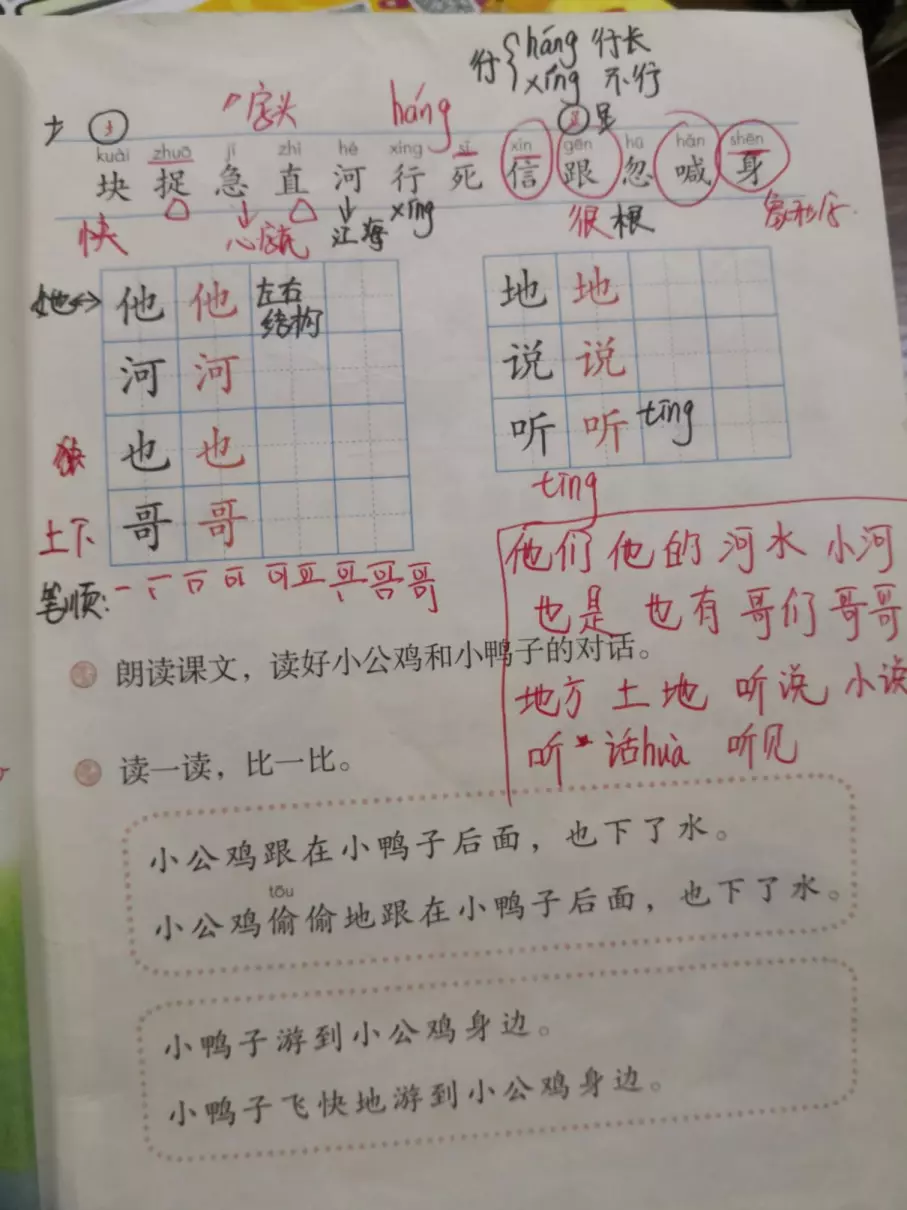 行 háng 行长
xíng 不行
字头 háng
kuài zhuō jí zhí hé xíng sǐ xìn gēn hū hǎn shēn
块 捉 急 直 河 行 死 信 跟 忽 喊 身
快 心底 江海 xíng 很 根 象形字
他 他 左右
结构
地 地
河 河
说 说
也 也
听 听 tīng
tīng
上下 哥 哥
笔顺:
他们 他的 河水 小河
也是 也有 哥们 哥哥
朗读课文，读好小公鸡和小鸭子的对话。
地方 土地 听说 小说
听话huà 听见
读一读，比一比。
小公鸡跟在小鸭子后面，也下了水。
tōu
小公鸡偷偷地跟在小鸭子后面，也下了水。
小鸭子游到小公鸡身边。
小鸭子飞快地游到小公鸡身边。